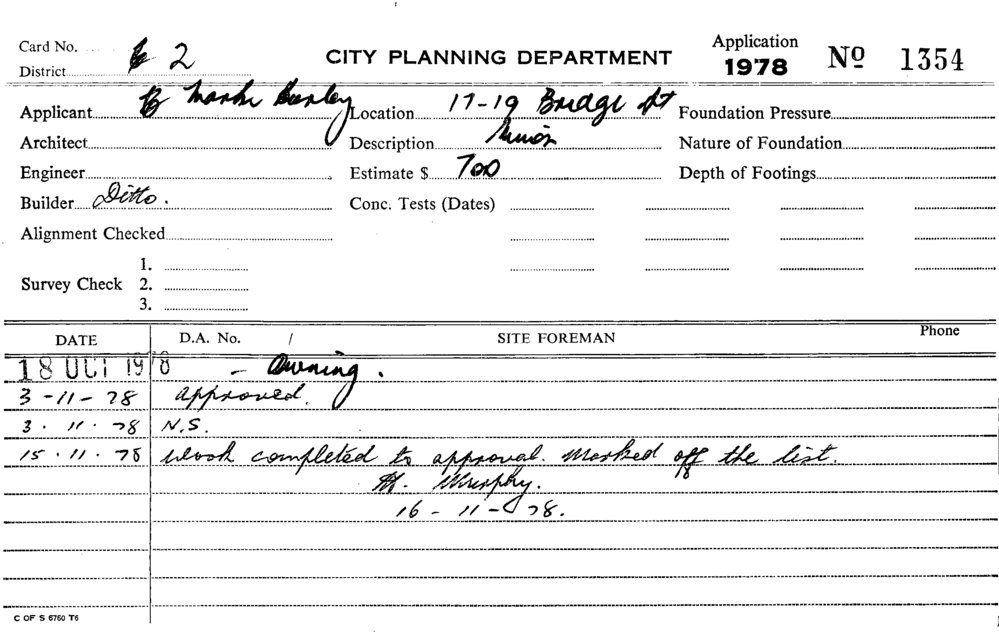 Card No.
District 2
CITY PLANNING DEPARTMENT
Application
1978
Nº 1354
Applicant Mark
Location 17-19 Bridge St
Foundation Pressure
Architect
Description Minor
Nature of Foundation
Engineer
Estimate $ 700
Depth of Footings
Builder Ditto.
Conc. Tests (Dates)
Alignment Checked
1.
Survey Check 2.
3.
DATE D.A. No. / SITE FOREMAN Phone
18 OCT 1978 - Awning.
3-11-78 approved.
3.11.78 N.S.
15.11.78 Work completed to approval. Marked off the list.
Murphy.
16-11-78.
C OF S 6750 T6